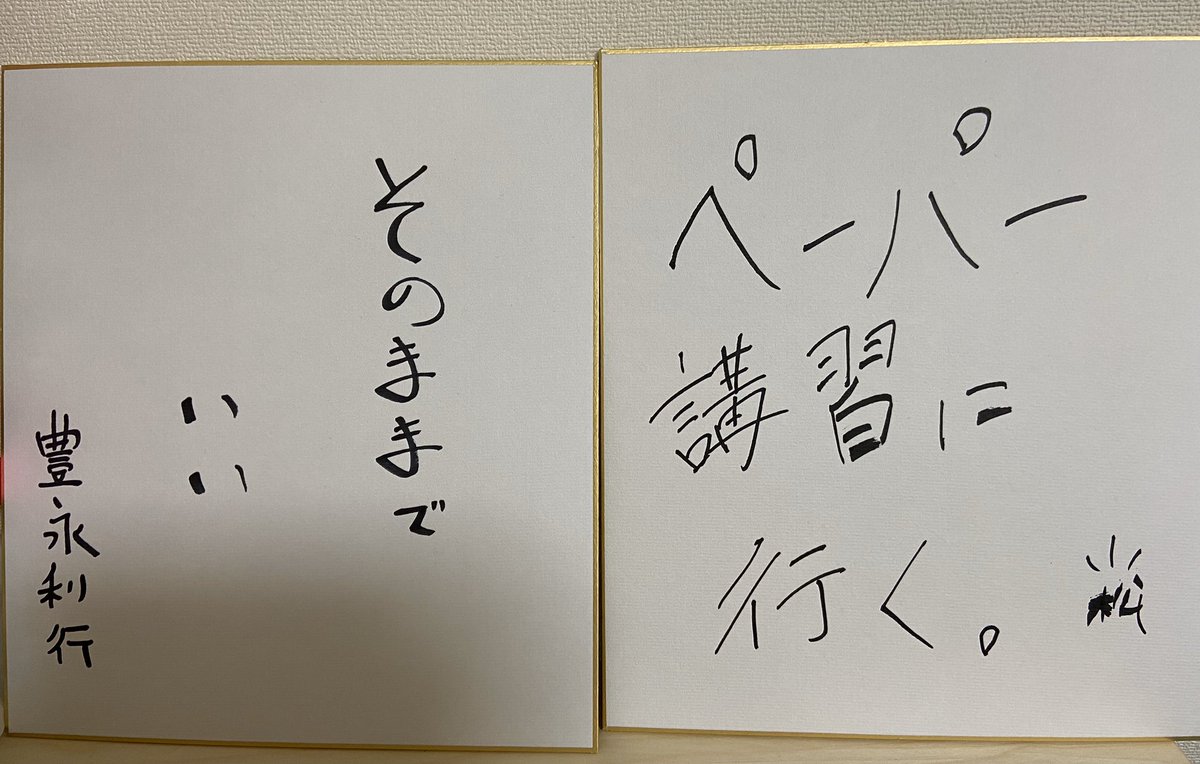 そのままで
いい
豊永利行
ペーパー
講習に
行く。